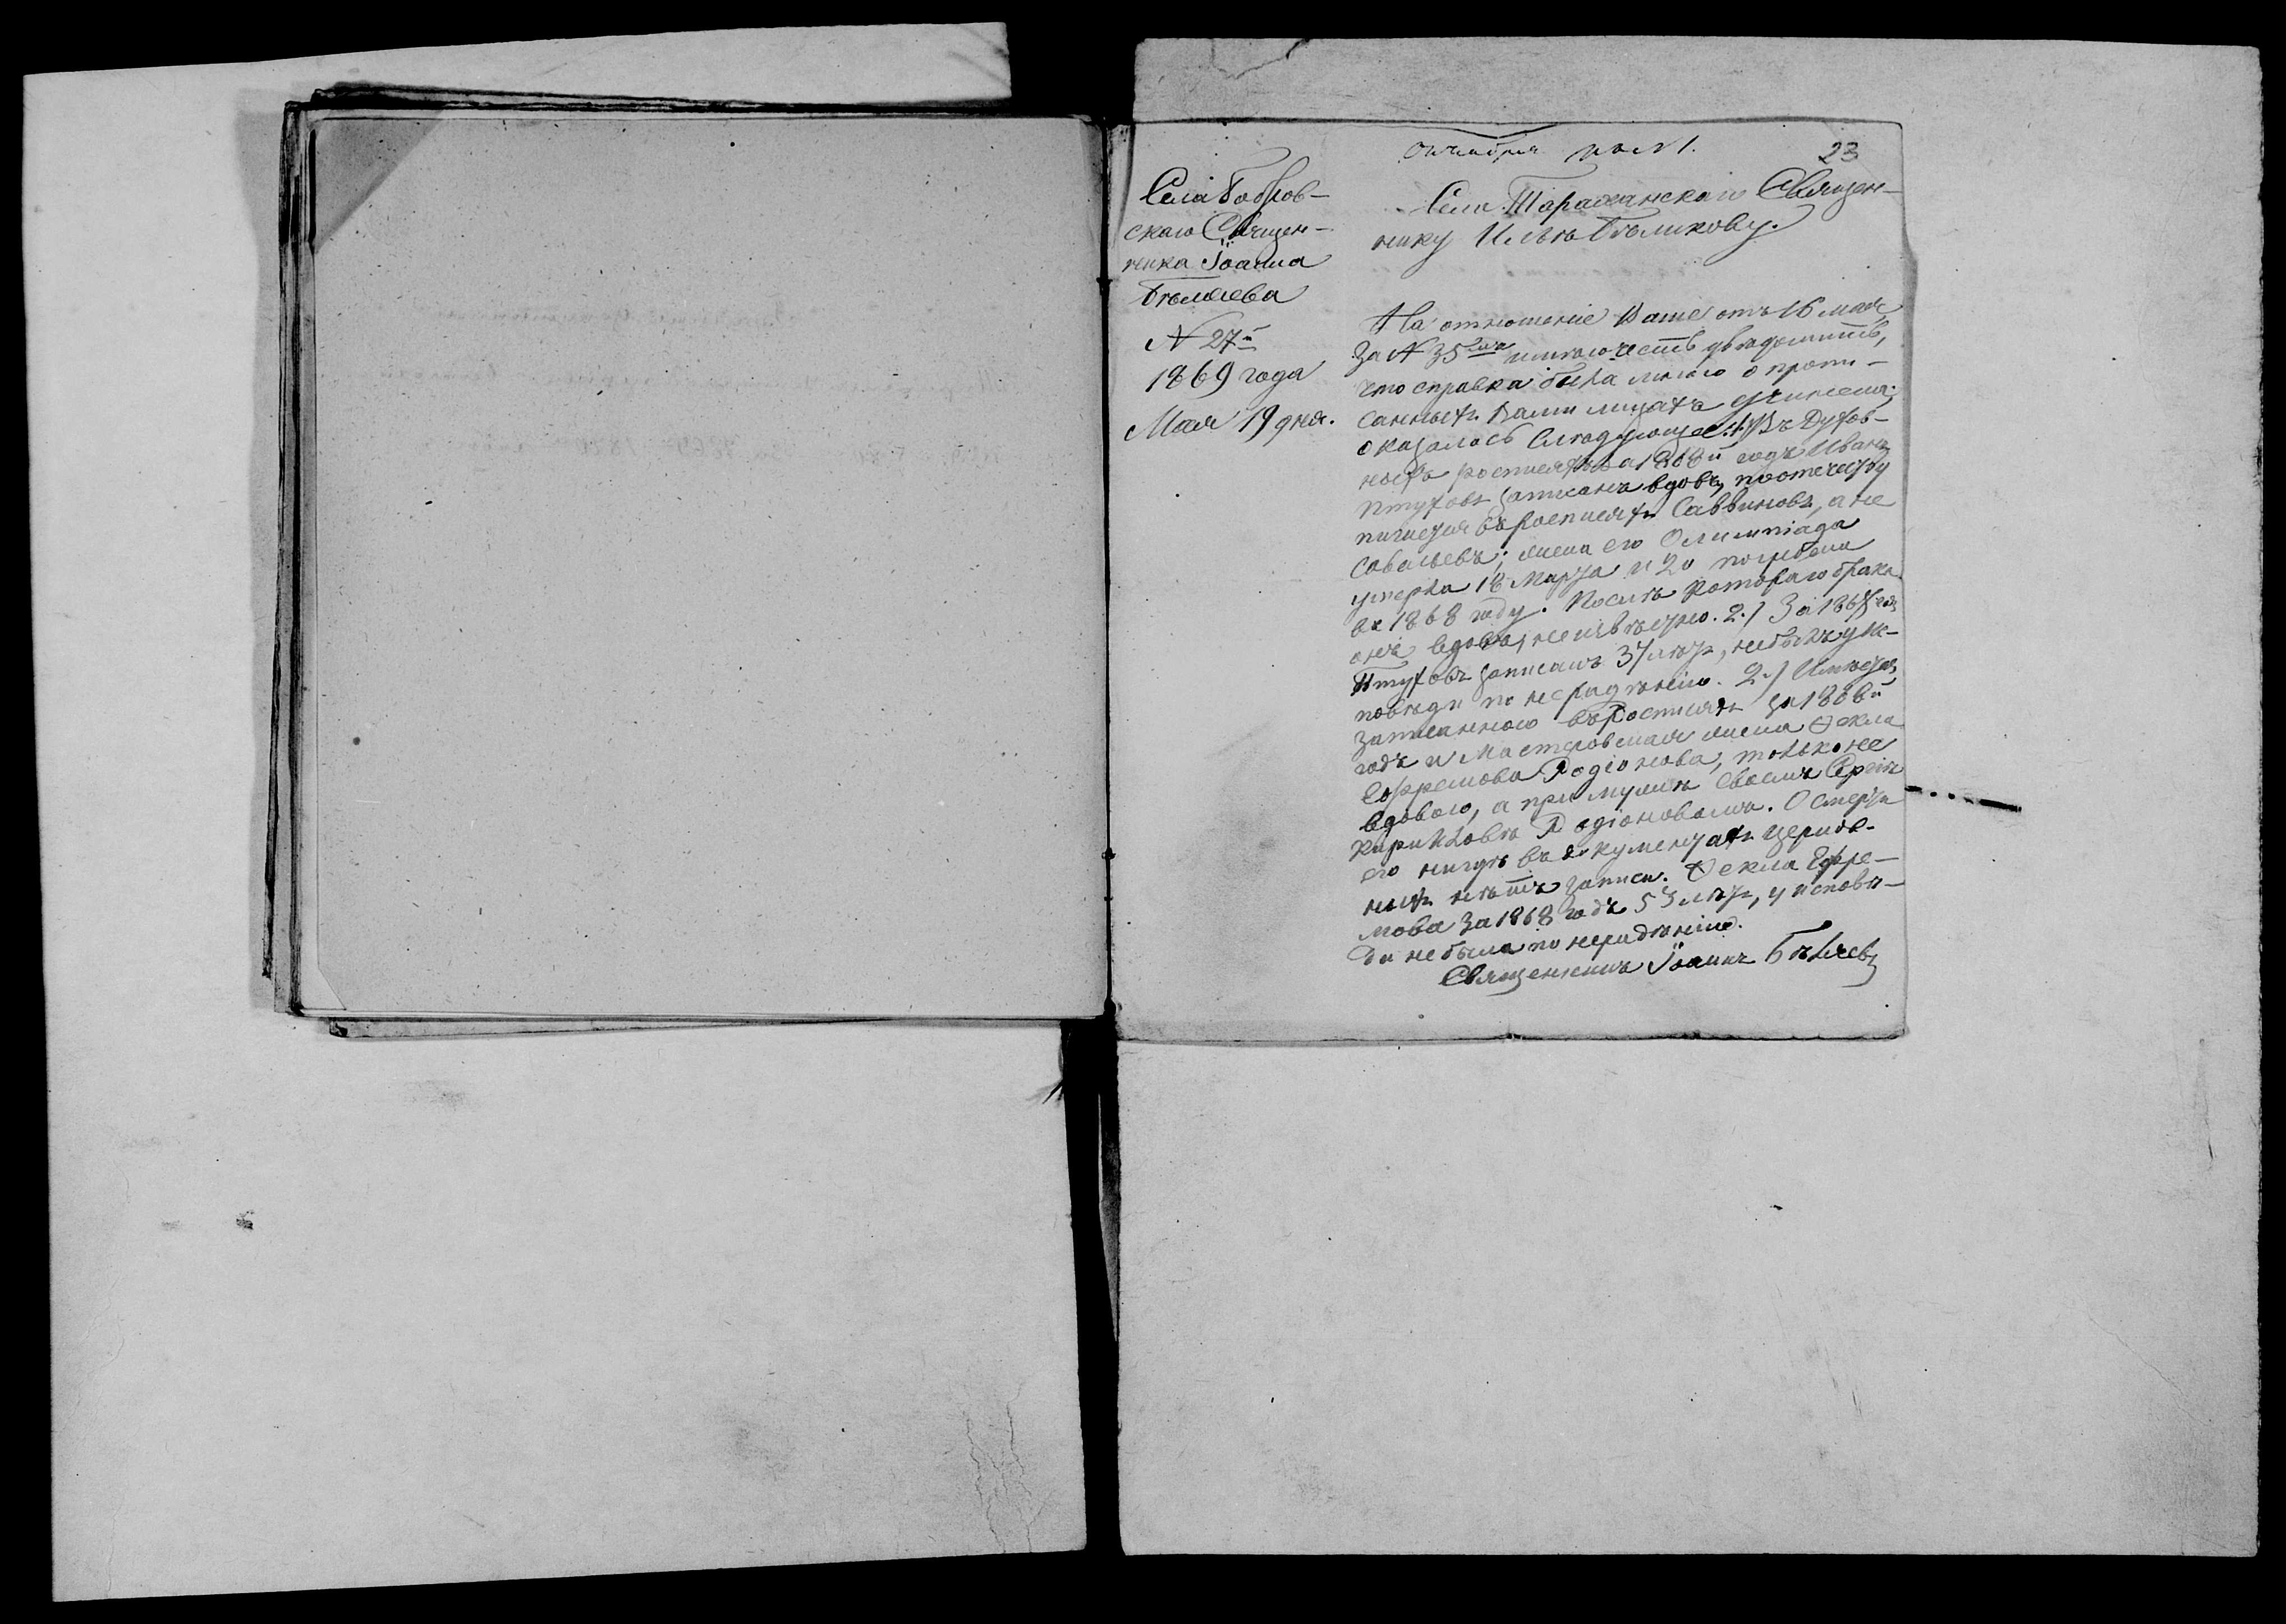 Октября по № 1.
23
Села Бобров-
скаго Священ-
ника Іоанна
Бѣляева
№ 27й
1869 года
Мая 19 дня.
Села Тараханскаго Священ-
нику Бѣликову.
На отношеніе Ваше отъ 16 мая,
За № 35 имѣю честь увѣдомить,
что справка была мною о пропи-
санныхъ Вами лицахъ учинена;
оказалось слѣдующее: 1) Въ Духов-
росписяхъ за 1868й годъ Иванъ
Птуховъ записанъ вдовъ, по отечеству
пишется въ росписяхъ Саввиновъ, а не
Савельевъ; жена его Олимпіада
умерла 18 Марта и 20 погребена
въ 1868 году. Послѣ котораго брака
онъ вдовъ, неизвѣстно. 2.) За 1868 годъ
Птуховъ записанъ 37 лѣтъ, не былъ у ис-
повѣди по нерадѣнію. 2.) Имѣется
записанною въ росписяхъ за 1868й
годъ и жена Ѳекла
Ефремова Родіонова, только не
вдовою, а при мужѣ своемъ Сергіѣ
Родіоновомъ. О смерти
его нигдѣ въ документахъ церков-
ныхъ нѣтъ записи. Ѳекла Ефре-
мова за 1868 годъ 53 лѣтъ, у исповѣ-
ди не была по нерадѣнію.
Священникъ Іоаннъ Бѣляевъ